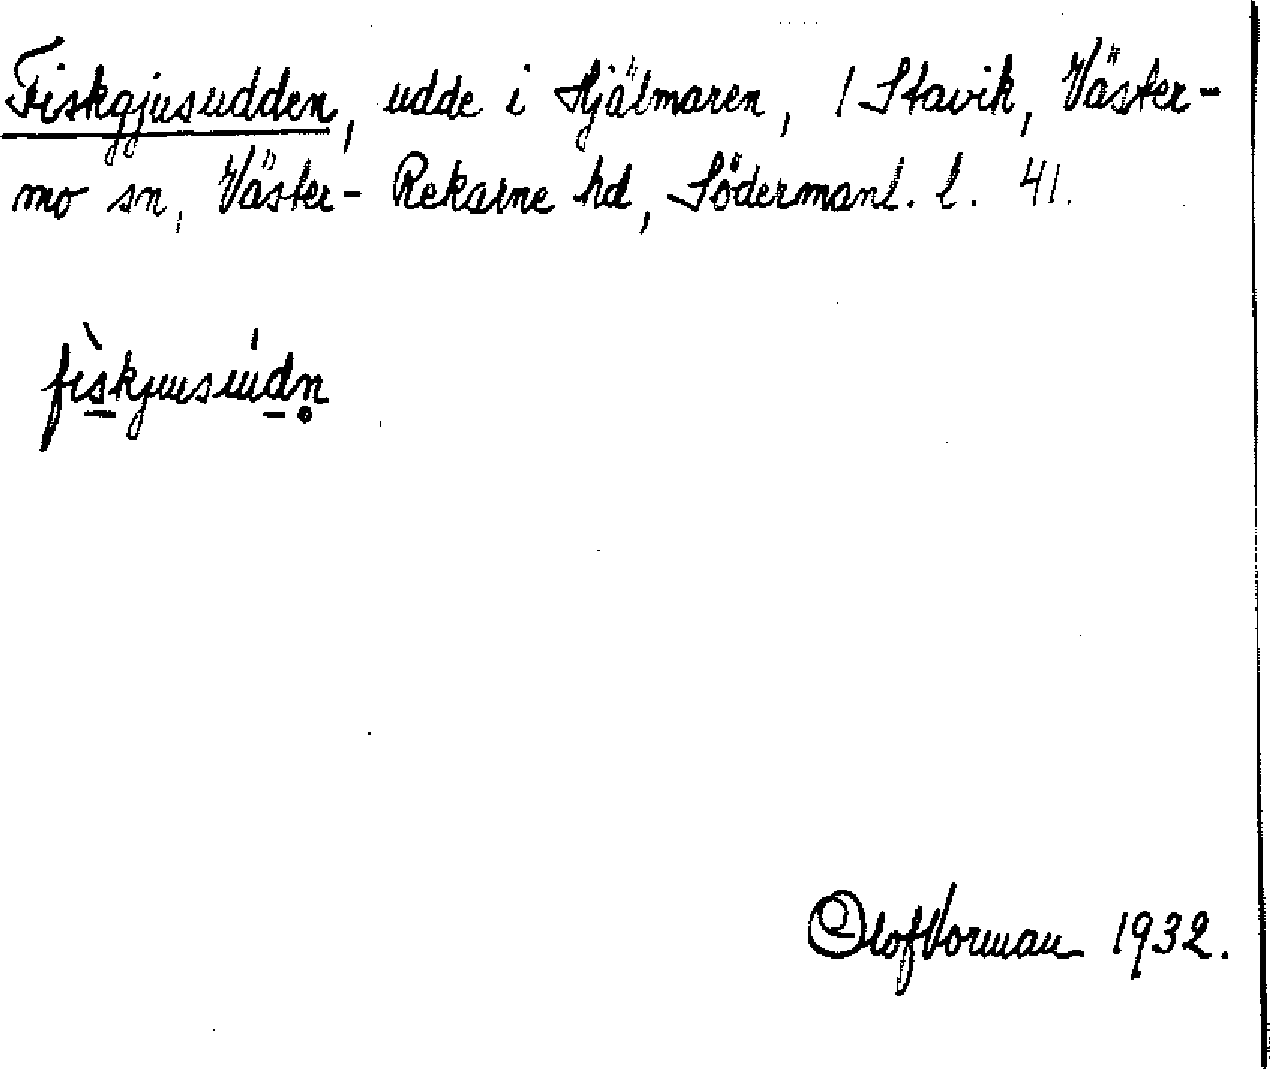 Fiskgjusudden, udde i Hjälmaren, / Stavik, Väster-
mo sn, Väster-Rekarne hd, Södermanl. l. 41.
Olof Vorman 1932.